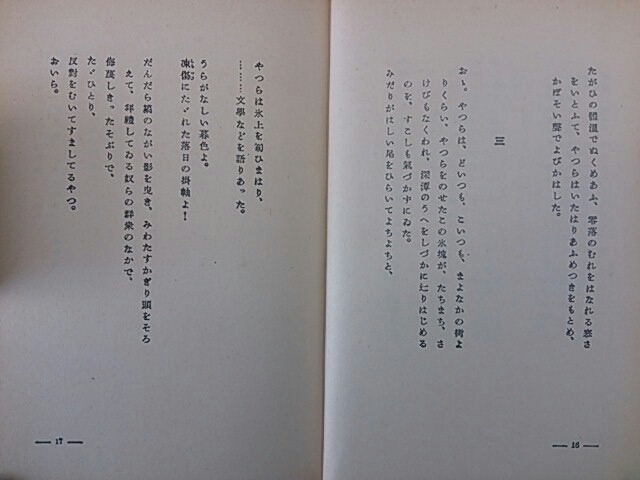 たがひの體温でぬくめあふ、零落のむれをはなれる寒さ
をいとふて、やつらはいたはりあふめつきをもとめ、
かぼそい聲でよびかはした。
三
おゝ。やつらは、どいつも、こいつも、まよなかの街よ
りくらい、やつらをのせたこの氷塊が、たちまち、さ
けびもなくわれ、深潭のうへをしづかに辷りはじめる
のを、すこしも氣づかずにゐた。
みだりがはしい尾をひらいてよちよちと、
16
やつらは氷上を匍ひまはり、
………文學などを語りあつた。
うらがなしい暮色よ。
凍傷にたゞれた落日の掛軸よ！
だんだら縞のながい影を曳き、みわたすかぎり頭をそろ
えて、拜禮してゐる奴らの群衆のなかで、
侮蔑しきつたそぶりで、
たゞひとり、
反對をむいてすましてるやつ。
おいら。
17